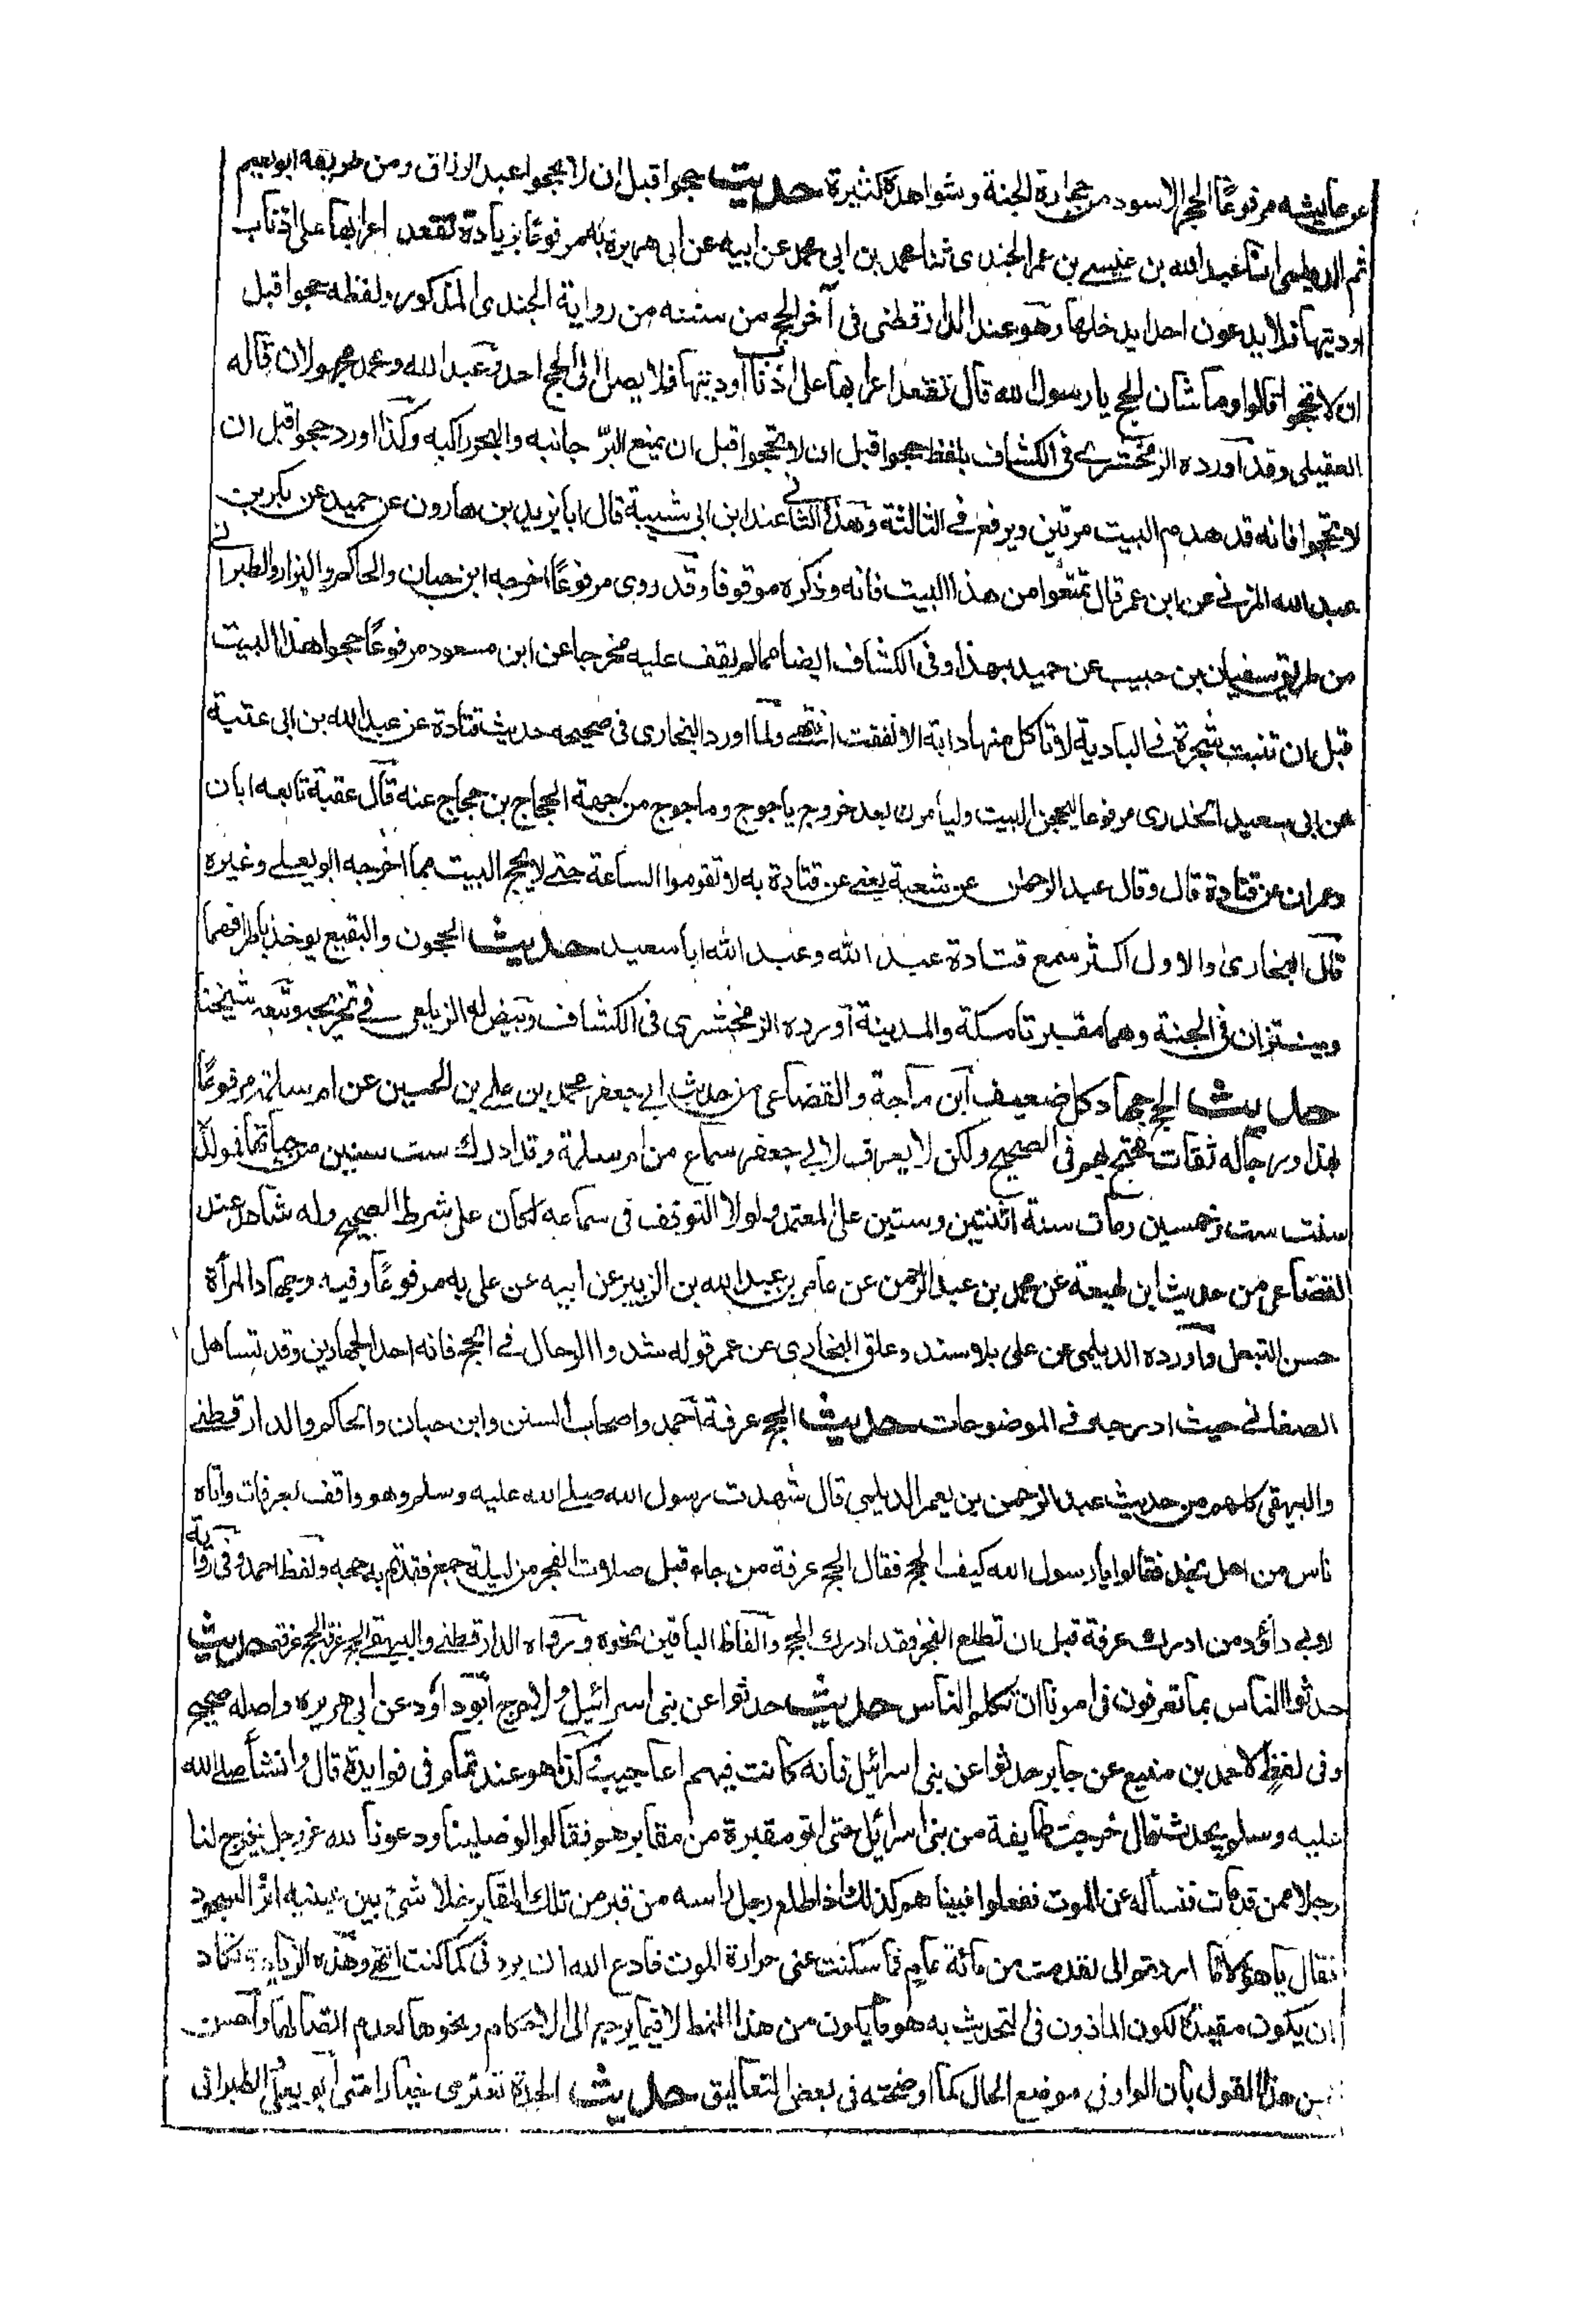 عن عايشه مرفوعًا الحجر الاسود من حجارة الجنة وشواهده كثيرة حديث حجوا قبل ان لا تحجوا عبد الرزاق ومن طريقه ابو نعيم
ثم الديلمى انا عبد الله بن عيسى بن عمر الجندى ثنا محمد بن ابى محمد عن ابيه عن ابى هريرة به مرفوعًا بزيادة تقعد اعرابها على اذناب
اوديتها فلا يدعون احدا يدخلها وهو عند الدارقطنى فى آخر الحج من سننه من رواية الجندى المذكور ولفظه حجوا قبل
ان لا تحجوا قالوا وما شان الحج يا رسول الله قال تقعد اعرابها على اذناب اوديتها فلا يصل الى الحج احد وعبد الله ومحمد مجهولان قاله
العقيلى وقد اورده الزمخشرى فى الكشاف بلفظ حجوا قبل ان لا تحجوا قبل ان يمنع البرّ جانبه والبحر راكبه وكذا اورد حجوا قبل ان
لا تحجوا فانه قد هدم البيت مرتين ويرفع فى الثالثة وهذا الثانى عند ابن ابى شيبة قال ابا يزيد بن هارون عن حميد عن بكر بن
عبد الله المزنى عن ابن عمر قال تمتعوا من هذا البيت فانه وذكره موقوفا وقد روى مرفوعًا اخرجه ابن حبان والحاكم والبزار والطبرانى
من طريق سفيان بن حبيب عن حميد بهذا وفى الكشاف ايضا مما لم يقف عليه مخرجا عن ابن مسعود مرفوعًا حجوا هذا البيت
قبل ان تنبت شجرة فى البادية لا تاكل منها دابة الا نفقت انتهى ولما اورد البخارى فى صحيحه حديث قتادة عن عبد الله بن ابى عتبة
عن ابى سعيد الخدرى مرفوعا ليحجن البيت وليأمرن بعد خروج ياجوج وماجوج من جهة الحجاج بن حجاج عنه قال عقبة تابعه ابان
وعمران عن قتادة قال وقال عبد الرحمن عن شعبة يعنى عن قتادة به لا تقوموا الساعة حتى لا يحج البيت مما اخرجه ابو يعلى وغيره
قال البخارى والاول اكثر سمع قتادة عبد الله وعبد الله ابا سعيد حديث الحجون والبقيع يوخذ باطرافهما
وينتثران فى الجنة وهما مقبرتا مكة والمدينة اورده الزمخشرى فى الكشاف وبيض له الزيلعى فى تخريجه وتبعه شيخنا
حديث الحج جهاد كل ضعيف ابن ماجة والقضاعى من حديث ابى جعفر محمد بن على بن الحسين عن ام سلمة مرفوعًا
بهذا ورجاله ثقات محتج بهم فى الصحيح ولكن لا يعرف لابى جعفر سماع من ام سلمة وقد ادرك ست سنين من حياتها فمولده
سنت ست وخمسين ومات سنة اثنتين وستين على المعتمد ولولا التوقف فى سماعه لكان على شرط الصحيح وله شاهد عند
القضاعى من حديث ابن لهيعة عن محمد بن عبد الرحمن عن عامر بن عبد الله بن الزبير عن ابيه عن على به مرفوعًا وفيه وجهاد المرأة
حسن التبعل واورده الديلمى عن على بلا سند وعلق البخارى عن عمر قوله شدوا الرحال فى الحج فانه احد الجهادين وقد تساهل
الصغانى حيث ادرجه فى الموضوعات حديث الحج عرفة احمد واصحاب السنن وابن حبان والحاكم والدارقطنى
والبيهقى كلهم من حديث عبد الرحمن بن يعمر الديلمى قال شهدت رسول الله صلى الله عليه وسلم وهو واقف بعرفات واتاه
ناس من اهل نجد فقالوا يا رسول الله كيف الحج فقال الحج عرفة من جاء قبل صلات الفجر من ليلة جمع فقد تم به حجه ولفظ احمد وفى رواية
لابى داؤد من ادرك عرفة قبل ان تطلع الفجر فقد ادرك الحج والفاظ الباقين نحوه ورواه الدارقطنى والبيهقى الحج عرفة الحج عرفة حديث
حدثوا الناس بما تعرفون فى امرنا ان نكلم الناس حديث حدثوا عن بنى اسرائيل ولا حرج ابو داود عن ابى هريره واصله صحيح
وفى لفظ لاحمد بن منيع عن جابر حدثوا عن بنى اسرائيل فانه كانت فيهم اعاجيب كذا هو عند تمام فى فوايده قال وانشأ صلى الله
عليه وسلم يحدث قال خرجت طايفة من بنى اسرائيل حتى اتو مقبرة من مقابرهم فقالوا لو صلينا ودعونا الله عز وجل يخرج لنا
رجلا ممن قد مات فنسأله عن الموت ففعلوا فبينا هم كذلك اذا اطلع رجل راسه من قبر من تلك المقابر خلا شئ بين عينيه اثر السجود
فقال يا هؤلاء ما اردتم الى لقد مت من مائة عام فما سكنت عنى حرارة الموت فادع الله ان يردنى كما كنت انتهى وهذه الزيادة تكاد
ان يكون مقيدة لكون الماذون فى التحديث به هو ما يكون من هذا النمط لا فيما يرجع الى الاحكام ونحوها لعدم اتصالها واحسن
من هذا القول بان الواو فى موضع الحال كما اوضحته فى بعض التعاليق حديث الحدة تعترى خيار امتى ابو يعلى الطبرانى